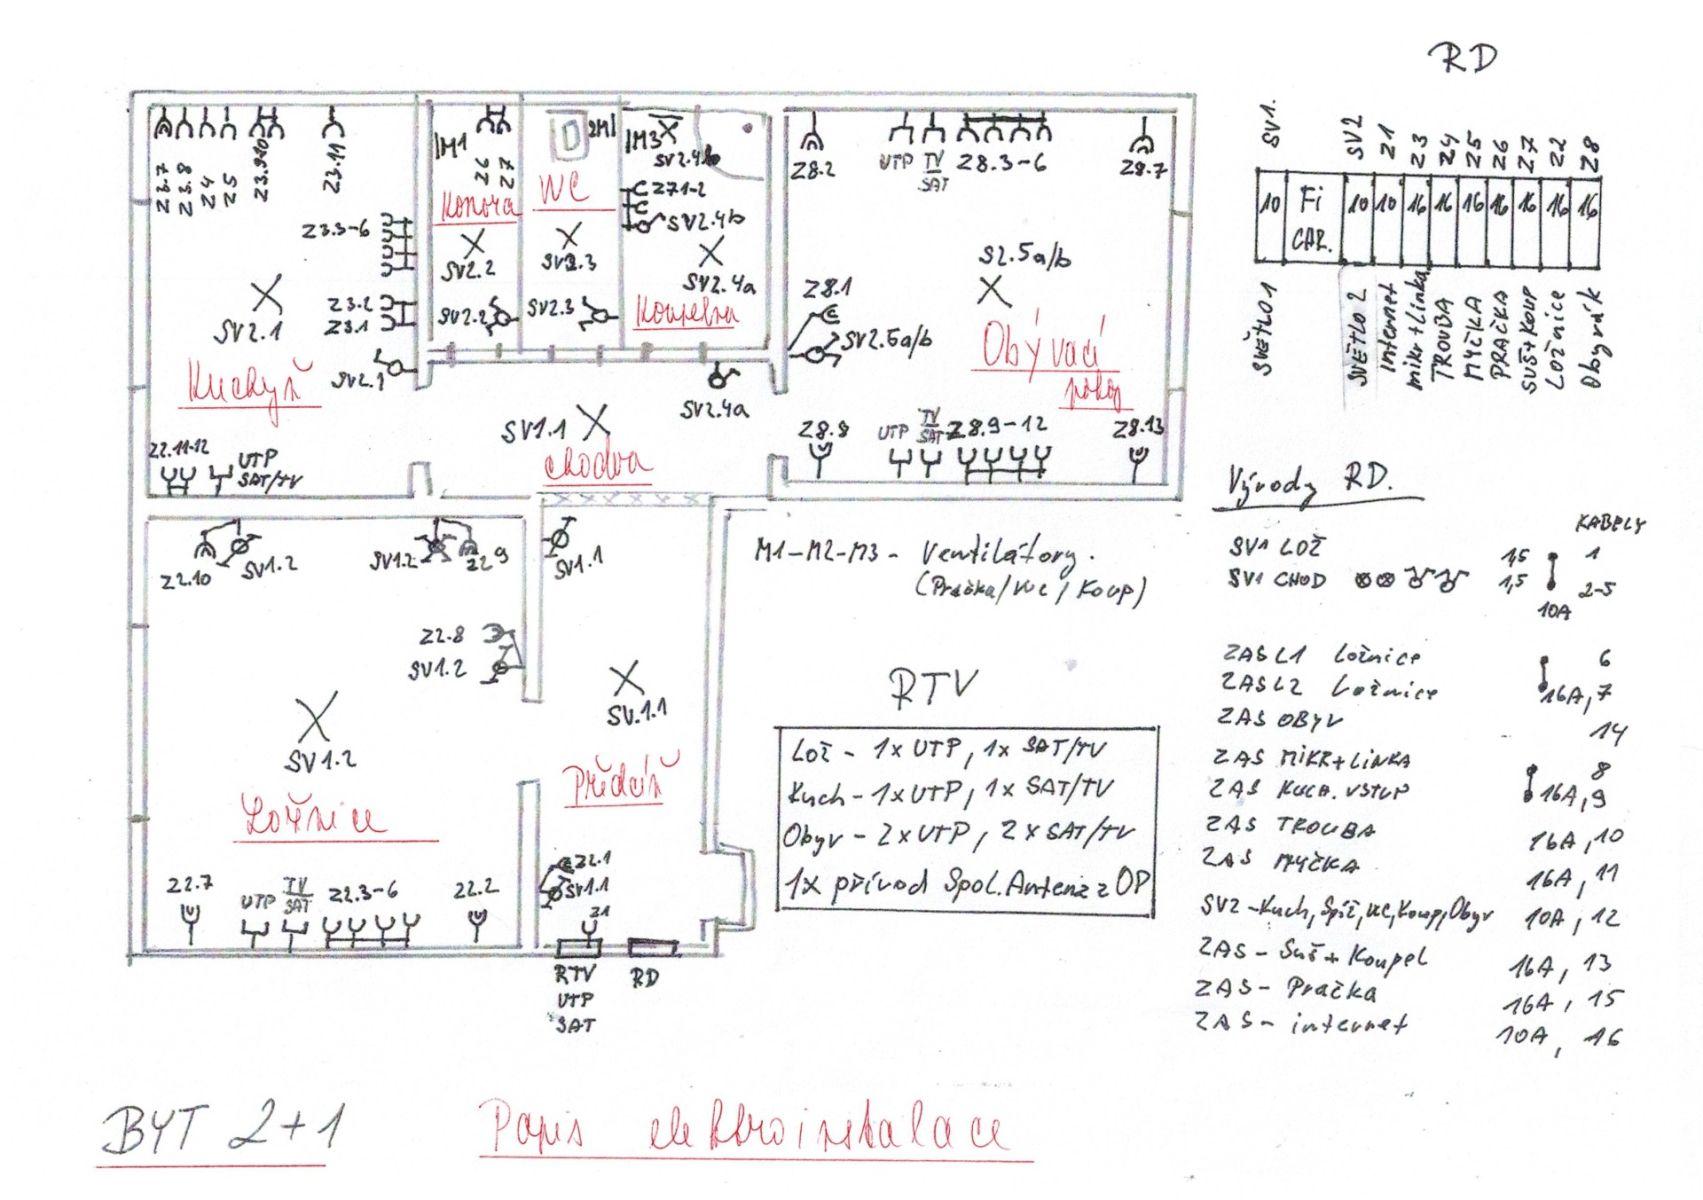 RD
SV1. SV2 Z1 Z3 Z4 Z5 Z6 Z7 Z2 Z8
10 Fi CAR. 10 10 16 16 16 16 16 16 16
SVĚTLO1 SVĚTLO 2 Internet mikr+Linka TROUBA MYČKA PRAČKA SUŠ+KOUP Ložnice Obyvák
Z3.7 Z3.8 Z4 Z5 Z3.9 10 Z3.11
M1 Z6 Z7
2M
M3 SV2.4b
Z8.2 UTP TV SAT Z8.3-6 Z8.7
Komora
WC
Z7.1-2
SV2.4b
Z3.3-6
SV2.2
SV2.3
SV2.4a
S2.5a/b
Z3.2
Z3.1
SV2.1
SV2.2
SV2.3
Koupelna
Z8.1
SV2.5a/b
Obývací
pokoj
Kuchyň
SV2.1
SV2.4a
SV1.1
chodba
Z2.11-12 UTP
SAT/TV
Z8.8 UTP TV SAT Z8.9-12 Z8.13
Z2.10 SV1.2 SV1.2 Z2.9 SV1.1
Z2.8
SV1.2
SV1.2
SV.1.1
Ložnice
Předsíň
Z2.7 UTP TV SAT Z2.3-6 Z2.2
Z2.1
SV1.1
Z1
RTV
UTP
SAT
RD
M1-M2-M3 - Ventilátory.
(Pračka/WC/Koup)
RTV
Lož - 1x UTP, 1x SAT/TV
Kuch - 1x UTP, 1x SAT/TV
Obyv - 2x UTP, 2x SAT/TV
1x přívod Spol. Antena z OP
Vývody RD.
KABELY
SV1 LOŽ 1,5 1
SV1 CHOD 1,5 2-5
10A
ZAS L1 Ložnice 6
ZAS L2 Ložnice 16A, 7
ZAS OBYV 14
ZAS MIKR+LINKA 8
ZAS KUCH. VSTUP 16A, 9
ZAS TROUBA 16A, 10
ZAS MYČKA 16A, 11
SV2 - Kuch, Spíž, WC, Koup, Obyv 10A, 12
ZAS - Suš + Koupel 16A, 13
ZAS - Pračka 16A, 15
ZAS - internet 10A, 16
BYT 2+1
Popis elektroinstalace